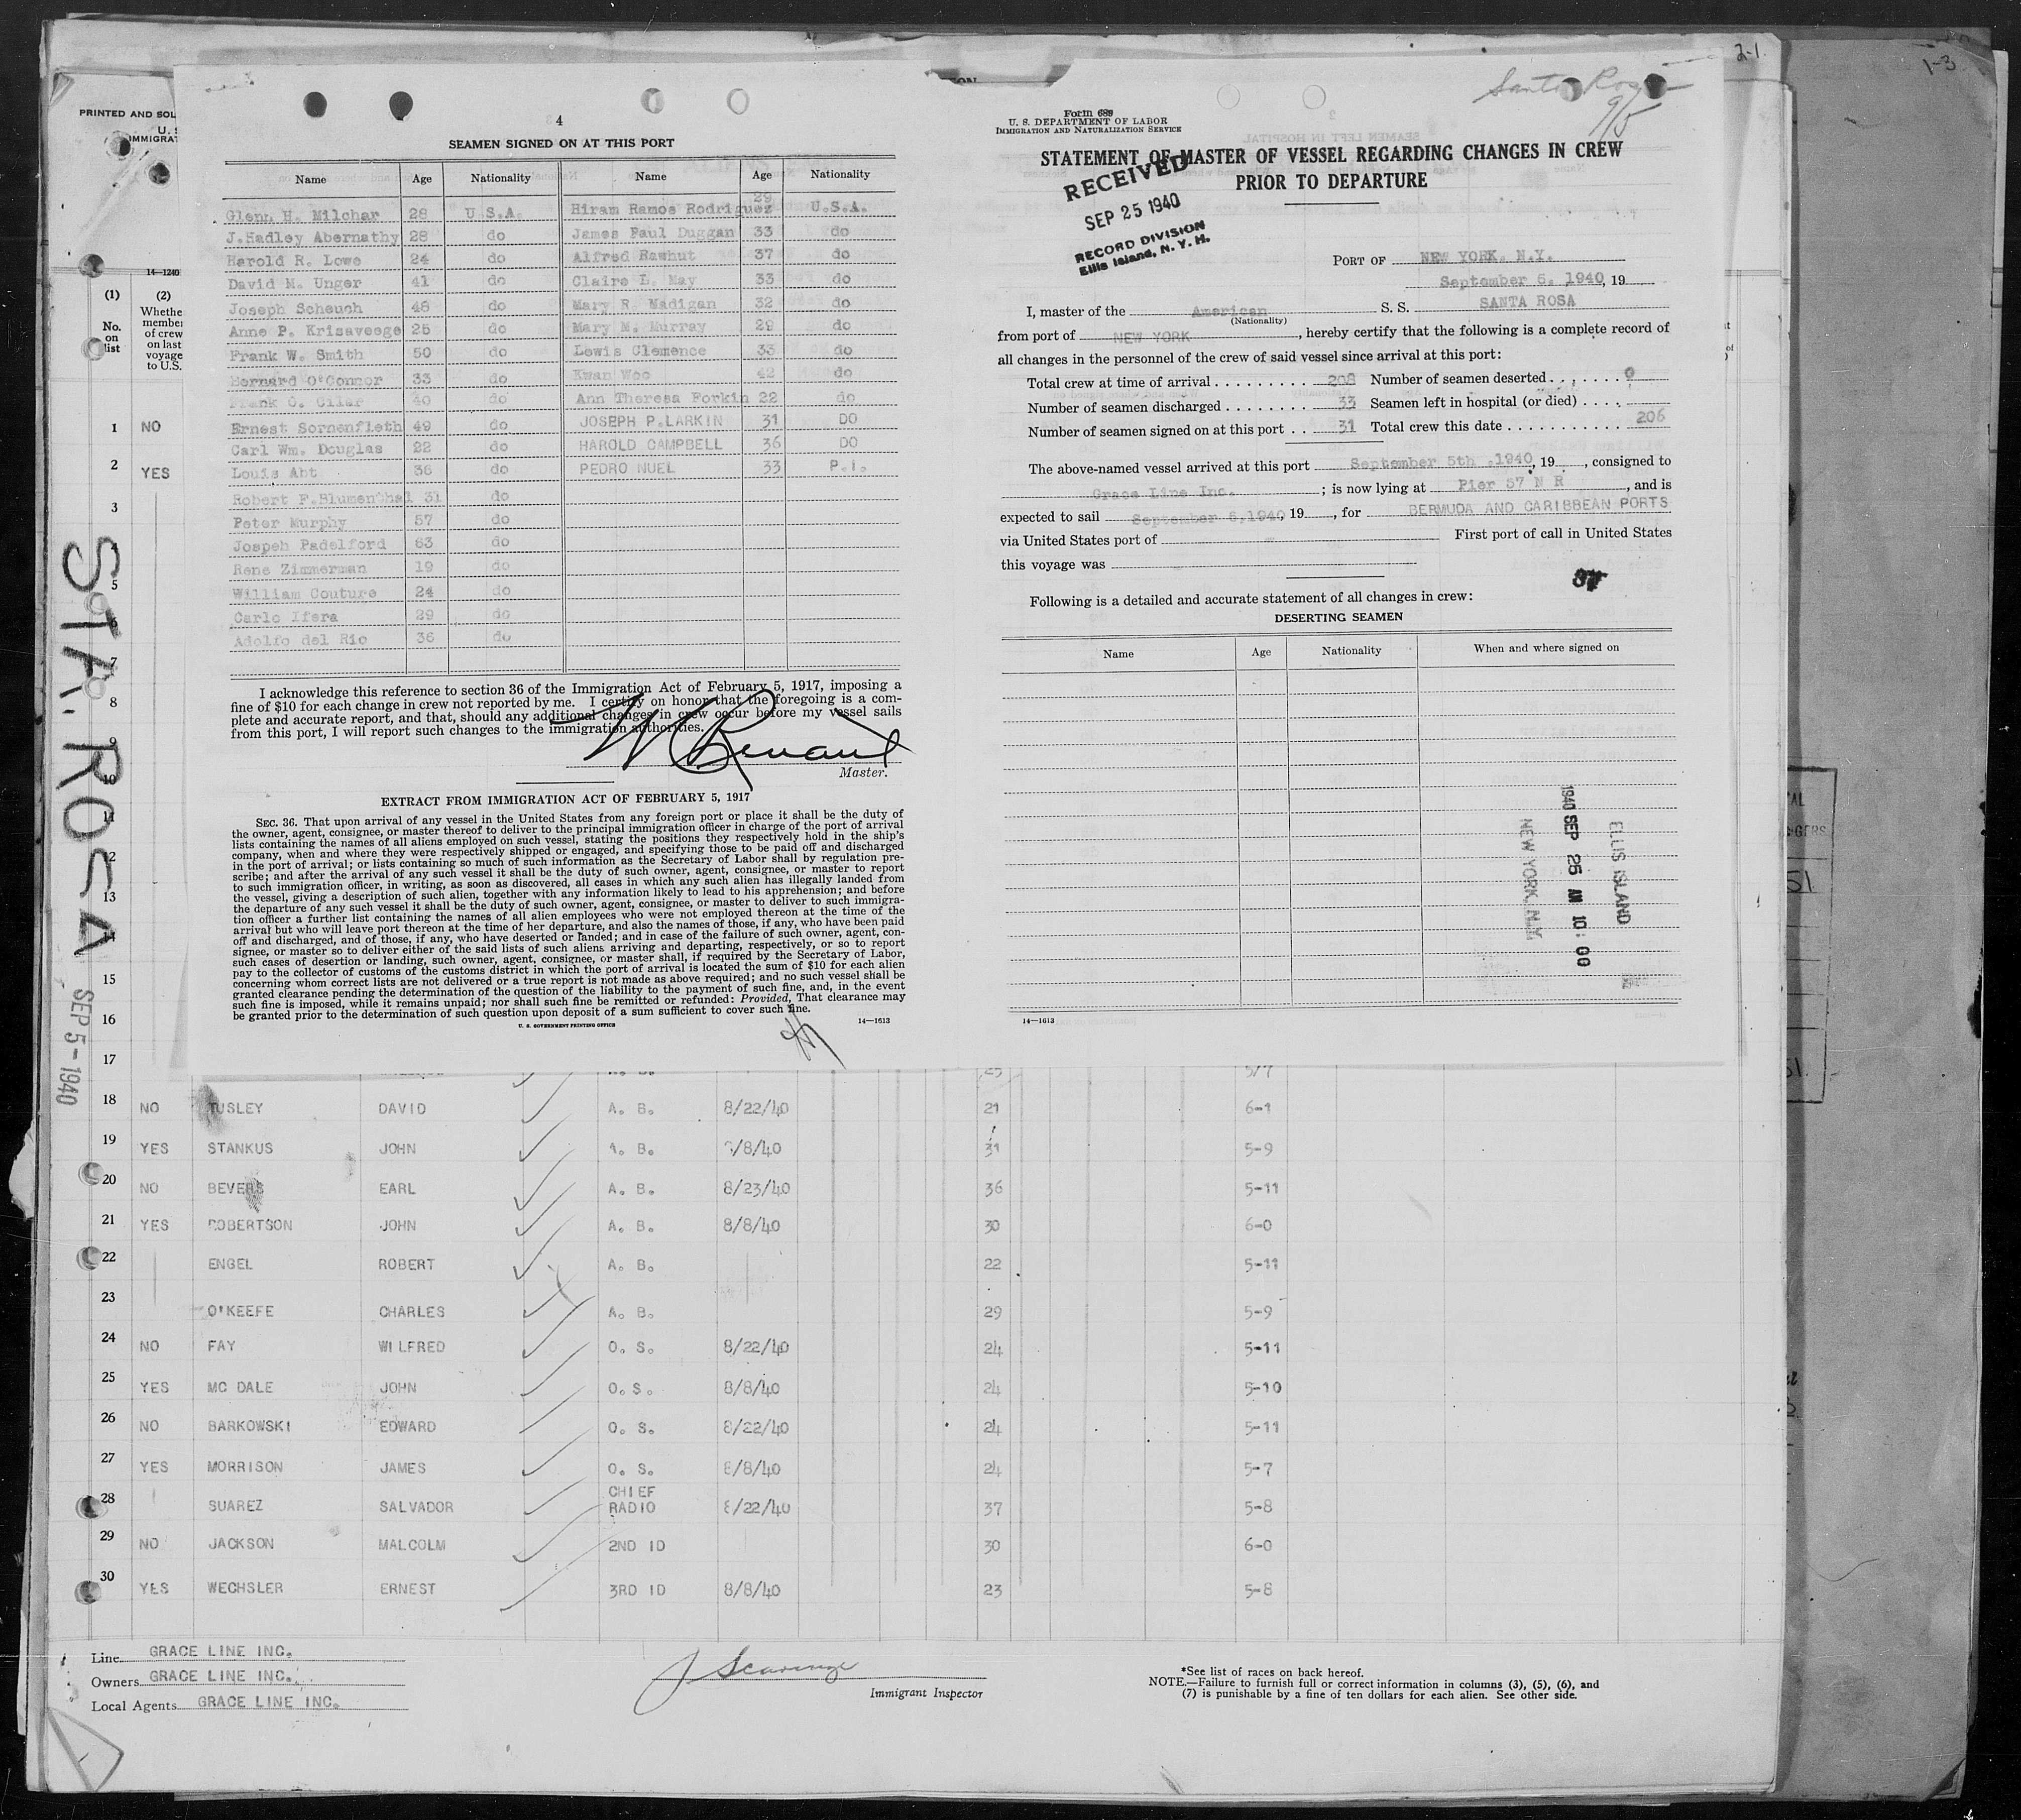 2-1
1-3
PRINTED AND SOL
U. S
IMMIGRAT
14—1240
(1) (2)
No. on list
Whethe
member
of crew
on last
voyage
to U.S.
1 NO
2 YES
3
4
5
6
7
8
9
10
11
12
13
14
15
16
17
STA. ROSA
SEP 5-1940
4
SEAMEN SIGNED ON AT THIS PORT
Name Age Nationality Name Age Nationality
Glenn H. Milchar 28 U.S.A. Hiram Ramos Rodriguez 29 U.S.A.
J.Hadley Abernathy 28 do James Paul Duggan 33 do
Harold R. Lowe 24 do Alfred Rawhut 37 do
David M. Unger 41 do Claire L. May 33 do
Joseph Scheuch 46 do Mary R. Madigan 32 do
Anne P. Krisaveege 25 do Mary M. Murray 29 do
Frank W. Smith 50 do Lewis Clemence 33 do
Bernard O'Connor 33 do Kwan Woo 42 do
Frank C. Ciler 40 do Ann Theresa Forkin 22 do
Ernest Sornenfleth 49 do JOSEPH P.LARKIN 31 DO
Carl Wm. Douglas 22 do HAROLD CAMPBELL 36 DO
Louis Abt 36 do PEDRO NUEL 33 P.I.
Robert F.Blumenthal 31 do
Peter Murphy 57 do
Jospeh Padelford 63 do
Rene Zimmerman 19 do
William Couture 24 do
Carlo Ifera 29 do
Adolfo del Rio 36 do
I acknowledge this reference to section 36 of the Immigration Act of February 5, 1917, imposing a
fine of $10 for each change in crew not reported by me. I certify on honor that the foregoing is a com-
plete and accurate report, and that, should any additional changes in crew occur before my vessel sails
from this port, I will report such changes to the immigration authorities.
Master.
EXTRACT FROM IMMIGRATION ACT OF FEBRUARY 5, 1917
SEC. 36. That upon arrival of any vessel in the United States from any foreign port or place it shall be the duty of
the owner, agent, consignee, or master thereof to deliver to the principal immigration officer in charge of the port of arrival
lists containing the names of all aliens employed on such vessel, stating the positions they respectively hold in the ship's
company, when and where they were respectively shipped or engaged, and specifying those to be paid off and discharged
in the port of arrival; or lists containing so much of such information as the Secretary of Labor shall by regulation pre-
scribe; and after the arrival of any such vessel it shall be the duty of such owner, agent, consignee, or master to report
to such immigration officer, in writing, as soon as discovered, all cases in which any such alien has illegally landed from
the vessel, giving a description of such alien, together with any information likely to lead to his apprehension; and before
the departure of any such vessel it shall be the duty of such owner, agent, consignee, or master to deliver to such immigra-
tion officer a further list containing the names of all alien employees who were not employed thereon at the time of the
arrival but who will leave port thereon at the time of her departure, and also the names of those, if any, who have been paid
off and discharged, and of those, if any, who have deserted or landed; and in case of the failure of such owner, agent, con-
signee, or master so to deliver either of the said lists of such aliens arriving and departing, respectively, or so to report
such cases of desertion or landing, such owner, agent, consignee, or master shall, if required by the Secretary of Labor,
pay to the collector of customs of the customs district in which the port of arrival is located the sum of $10 for each alien
concerning whom correct lists are not delivered or a true report is not made as above required; and no such vessel shall be
granted clearance pending the determination of the question of the liability to the payment of such fine, and, in the event
such fine is imposed, while it remains unpaid; nor shall such fine be remitted or refunded: Provided, That clearance may
be granted prior to the determination of such question upon deposit of a sum sufficient to cover such fine.
U. S. GOVERNMENT PRINTING OFFICE 14—1613
Santa Rosa
9/5
Form 689
U. S. DEPARTMENT OF LABOR
IMMIGRATION AND NATURALIZATION SERVICE
STATEMENT OF MASTER OF VESSEL REGARDING CHANGES IN CREW
PRIOR TO DEPARTURE
RECEIVED
SEP 25 1940
RECORD DIVISION
Ellis Island, N. Y. H.
PORT OF NEW YORK. N.Y.
September 6, 1940, 19
I, master of the American S. S. SANTA ROSA
(Nationality)
from port of NEW YORK, hereby certify that the following is a complete record of
all changes in the personnel of the crew of said vessel since arrival at this port:
Total crew at time of arrival 208 Number of seamen deserted 0
Number of seamen discharged 33 Seamen left in hospital (or died)
Number of seamen signed on at this port 31 Total crew this date 206
The above-named vessel arrived at this port September 5th .1940, 19, consigned to
Grace Line Inc. ; is now lying at Pier 57 N R, and is
expected to sail September 6,1940, 19, for BERMUDA AND CARIBBEAN PORTS
via United States port of First port of call in United States
this voyage was
Following is a detailed and accurate statement of all changes in crew:
DESERTING SEAMEN
Name Age Nationality When and where signed on
1940 SEP 26 AM 10:00
ELLIS ISLAND
NEW YORK, N.Y.
14—1613
18 NO TUSLEY DAVID A. B. 8/22/40 21 6-1
19 YES STANKUS JOHN A. B. /8/40 31 5-9
20 NO BEVERS EARL A. B. 8/23/40 36 5-11
21 YES ROBERTSON JOHN A. B. 8/8/40 30 6-0
22 ENGEL ROBERT A. B. 22 5-11
23 O'KEEFE CHARLES A. B. 29 5-9
24 NO FAY WILFRED O. S. 8/22/40 24 5-11
25 YES MC DALE JOHN O. S. 8/8/40 24 5-10
26 NO BARKOWSKI EDWARD O. S. 8/22/40 24 5-11
27 YES MORRISON JAMES O. S. 8/8/40 24 5-7
28 SUAREZ SALVADOR CHIEF RADIO 8/22/40 37 5-8
29 NO JACKSON MALCOLM 2ND ID 30 6-0
30 YES WECHSLER ERNEST 3RD ID 8/8/40 23 5-8
Line GRACE LINE INC.
Owners GRACE LINE INC.
Local Agents GRACE LINE INC.
Immigrant Inspector
*See list of races on back hereof.
NOTE.—Failure to furnish full or correct information in columns (3), (5), (6), and
(7) is punishable by a fine of ten dollars for each alien. See other side.